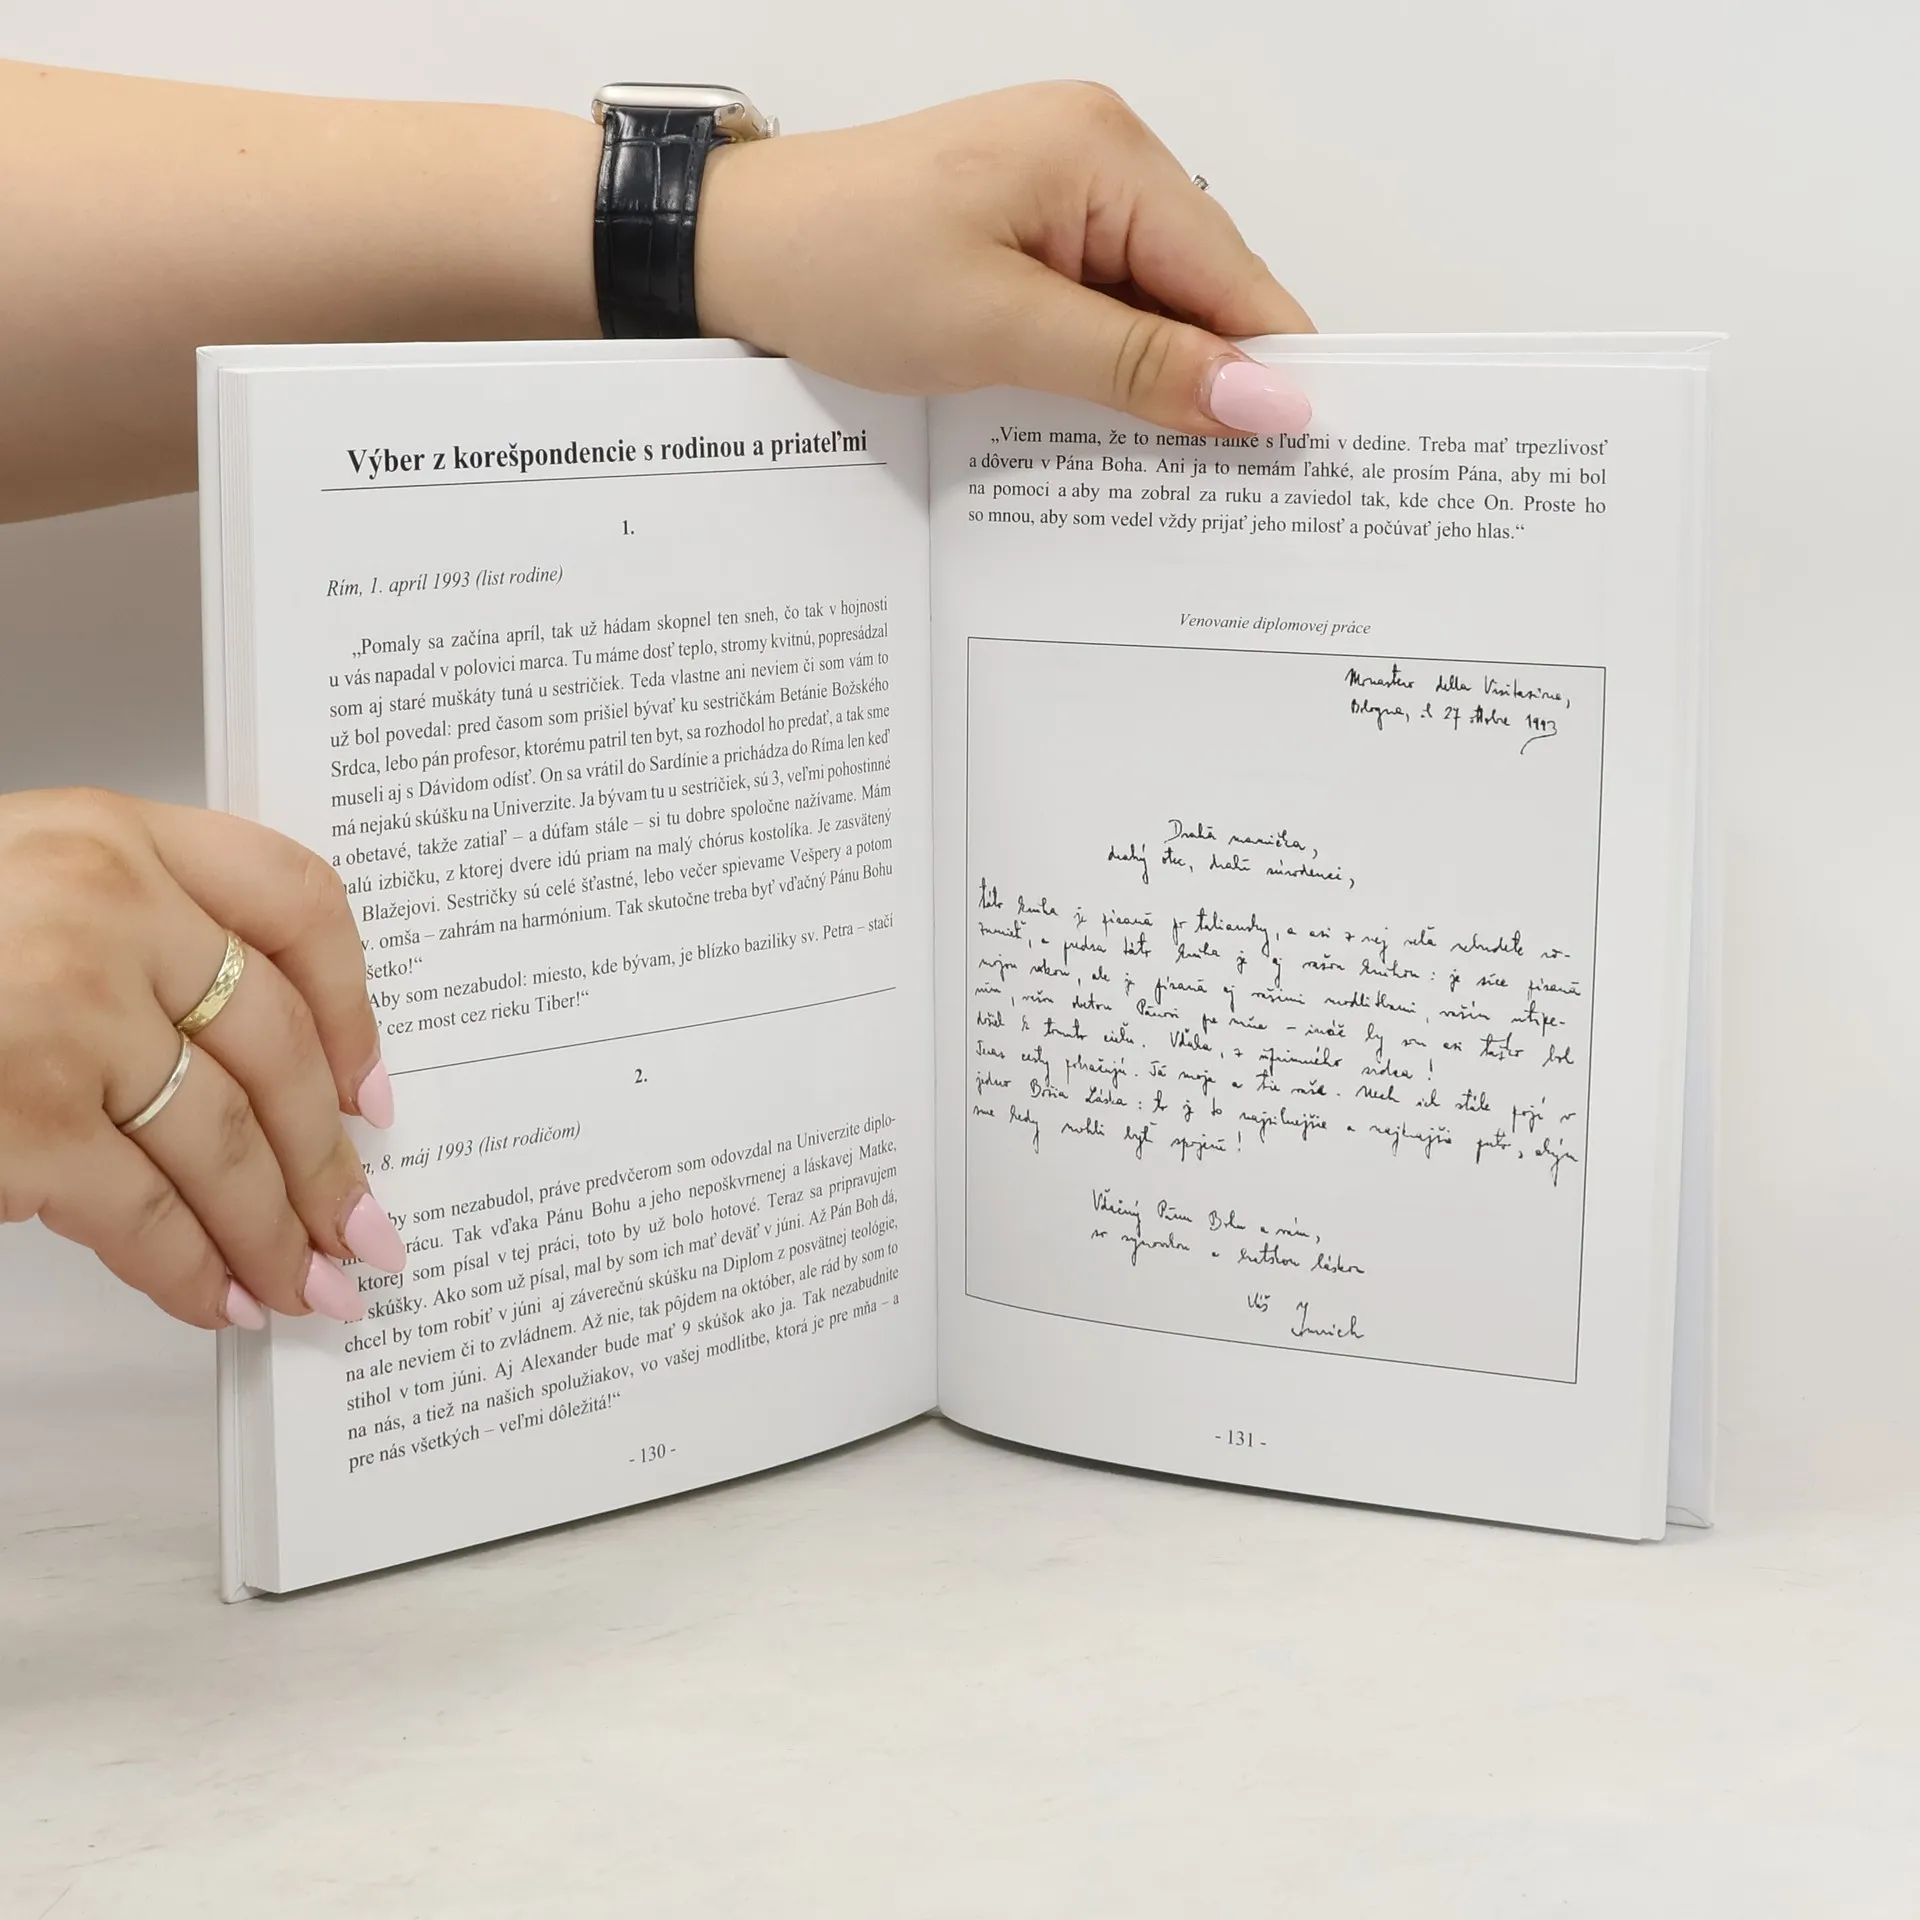 Výber z korešpondencie s rodinou a priateľmi
1.
Rím, 1. apríl 1993 (list rodine)
„Pomaly sa začína apríl, tak už hádam skopnel ten sneh, čo tak v hojnosti
u vás napadal v polovici marca. Tu máme dosť teplo, stromy kvitnú, popresádzal
som aj staré muškáty tuná u sestričiek. Teda vlastne ani neviem či som vám to
už bol povedal: pred časom som prišiel bývať ku sestričkám Betánie Božského
Srdca, lebo pán profesor, ktorému patril ten byt, sa rozhodol ho predať, a tak sme
museli aj s Dávidom odísť. On sa vrátil do Sardínie a prichádza do Ríma len keď
má nejakú skúšku na Univerzite. Ja bývam tu u sestričiek, sú 3, veľmi pohostinné
a obetavé, takže zatiaľ – a dúfam stále – si tu dobre spoločne nažívame. Mám
alú izbičku, z ktorej dvere idú priam na malý chórus kostolíka. Je zasvätený
Blažejovi. Sestričky sú celé šťastné, lebo večer spievame Vešpery a potom
v. omša – zahrám na harmónium. Tak skutočne treba byť vďačný Pánu Bohu
šetko!“
Aby som nezabudol: miesto, kde bývam, je blízko baziliky sv. Petra – stačí
cez most cez rieku Tiber!“
2.
8. máj 1993 (list rodičom)
by som nezabudol, práve predvčerom som odovzdal na Univerzite diplo-
rácu. Tak vďaka Pánu Bohu a jeho nepoškvrnenej a láskavej Matke,
ktorej som písal v tej práci, toto by už bolo hotové. Teraz sa pripravujem
skúšky. Ako som už písal, mal by som ich mať deväť v júni. Až Pán Boh dá,
chcel by tom robiť v júni aj záverečnú skúšku na Diplom z posvätnej teológie,
na ale neviem či to zvládnem. Až nie, tak pôjdem na október, ale rád by som to
stihol v tom júni. Aj Alexander bude mať 9 skúšok ako ja. Tak nezabudnite
na nás, a tiež na našich spolužiakov, vo vašej modlitbe, ktorá je pre mňa – a
pre nás všetkých – veľmi dôležitá!“
- 130 -
„Viem mama, že to nemáš ľahké s ľuďmi v dedine. Treba mať trpezlivosť
a dôveru v Pána Boha. Ani ja to nemám ľahké, ale prosím Pána, aby mi bol
na pomoci a aby ma zobral za ruku a zaviedol tak, kde chce On. Proste ho
so mnou, aby som vedel vždy prijať jeho milosť a počúvať jeho hlas.“
Venovanie diplomovej práce
Monastero della Visitazione,
Bologna, il 27 ottobre 1993
Drahá mamička,
drahý otec, drahí súrodenci,
táto kniha je písaná po taliansky, a asi z nej veľa nebudete ro-
zumieť, a predsa táto kniha je aj vašou knihou: je síce písaná
mojou rukou, ale je písaná aj vašimi modlitbami, vaším utrpe-
ním, vašou obetou Pánovi pre mňa – ináč by som asi ťažko bol
došiel k tomuto cieľu. Vďaka, z úprimného srdca!
cesty pokračujú. Tá moja a tie vaše. Nech ich stále pojí v
jedno Božia Láska: to je to najsilnejšie a najkrajšie puto, akým
sme kedy mohli byť spojení!
Vďačný Pánu Bohu a vám,
so synovskou a bratskou láskou
Váš
Imrich
- 131 -